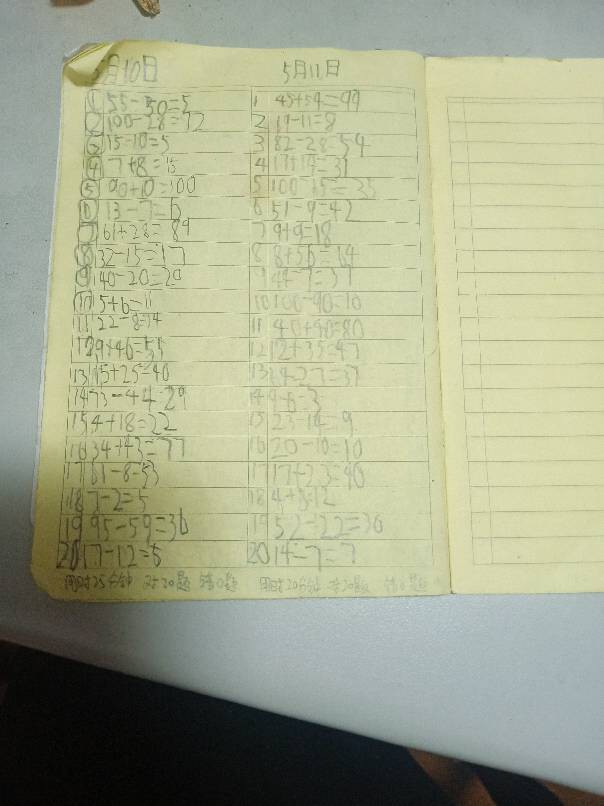 5月10日
① 55-50=5
② 100-28=72
③ 15-10=5
④ 7+8=15
⑤ 90+10=100
⑥ 13-7=6
⑦ 61+28=89
⑧ 32-15=17
⑨ 40-20=20
⑩ 5+6=11
11 22-8=14
12 9+46=55
13 15+25=40
14 73-44=29
15 4+18=22
16 34+43=77
17 61-8=53
18 7-2=5
19 95-59=36
20 17-12=5
用时25分钟 20题 错0题
5月11日
1 45+54=99
2 19-11=8
3 82-28=54
4
5
6 51-9=42
7 9+9=18
8 8+56=64
9 44-7=37
10 100-90=10
11 40+40=80
12 12+35=47
13 64-27=37
14 9-6=3
15 23-14=9
16 20-10=10
17 17+23=40
18 4+8=12
19 52-22=30
20 14-7=7
用时20分钟 共20题 错0题